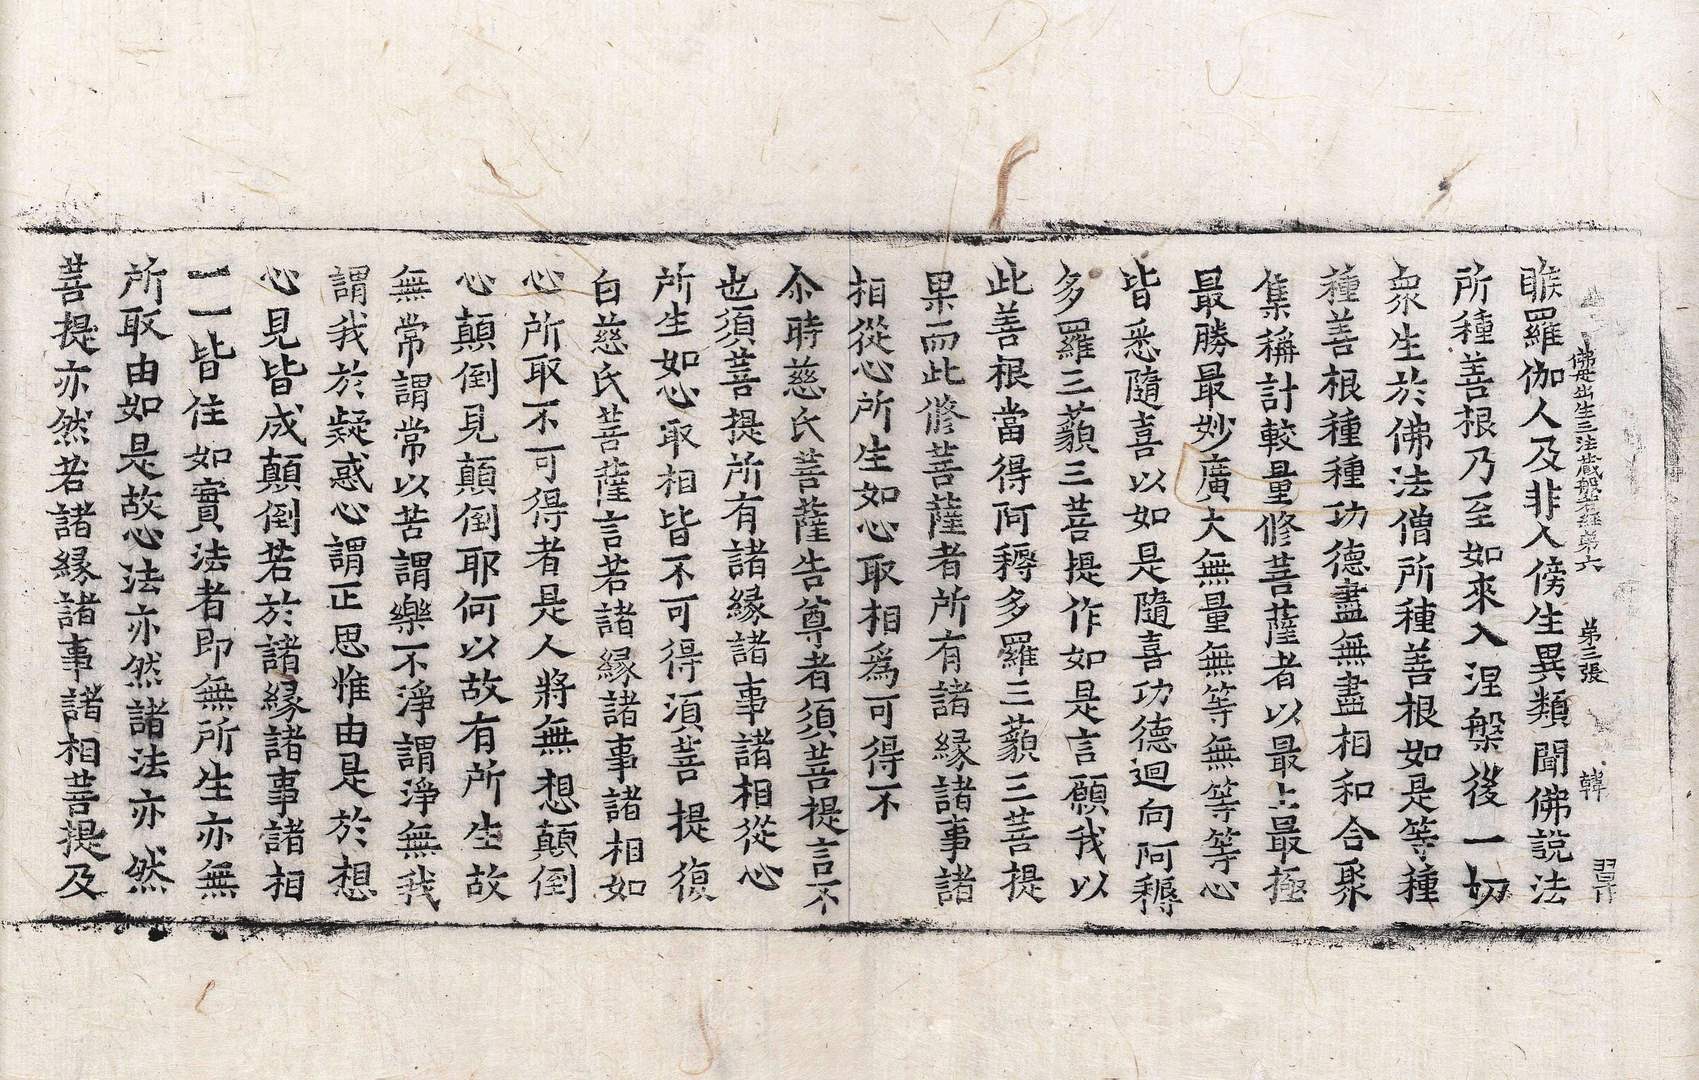 佛母出生三法藏般若經第六　第三張　韓　㗊
睺羅伽人及非人傍生異類聞佛說法
所種善根乃至如來入涅槃後一切
衆生於佛法僧所種善根如是等種
種善根種種功德盡無盡相和合聚
集稱計較量修菩薩者以最上最極
最勝最妙廣大無量無等無等等心
皆悉隨喜以如是隨喜功德迴向阿耨
多羅三藐三菩提作如是言願我以
此善根當得阿耨多羅三藐三菩提
果而此修菩薩者所有諸緣諸事諸
相從心所生如心取相爲可得不
尒時慈氏菩薩告尊者須菩提言不
也須菩提所有諸緣諸事諸相從心
所生如心取相皆不可得須菩提復
白慈氏菩薩言若諸緣諸事諸相如
心所取不可得者是人將無想顛倒
心顛倒見顛倒耶何以故有所生故
無常謂常以苦謂樂不淨謂淨無我
謂我於疑惑心謂正思惟由是於想
心見皆成顛倒若於諸緣諸事諸相
一一皆住如實法者即無所生亦無
所取由如是故心法亦然諸法亦然
菩提亦然若諸緣諸事諸相菩提及